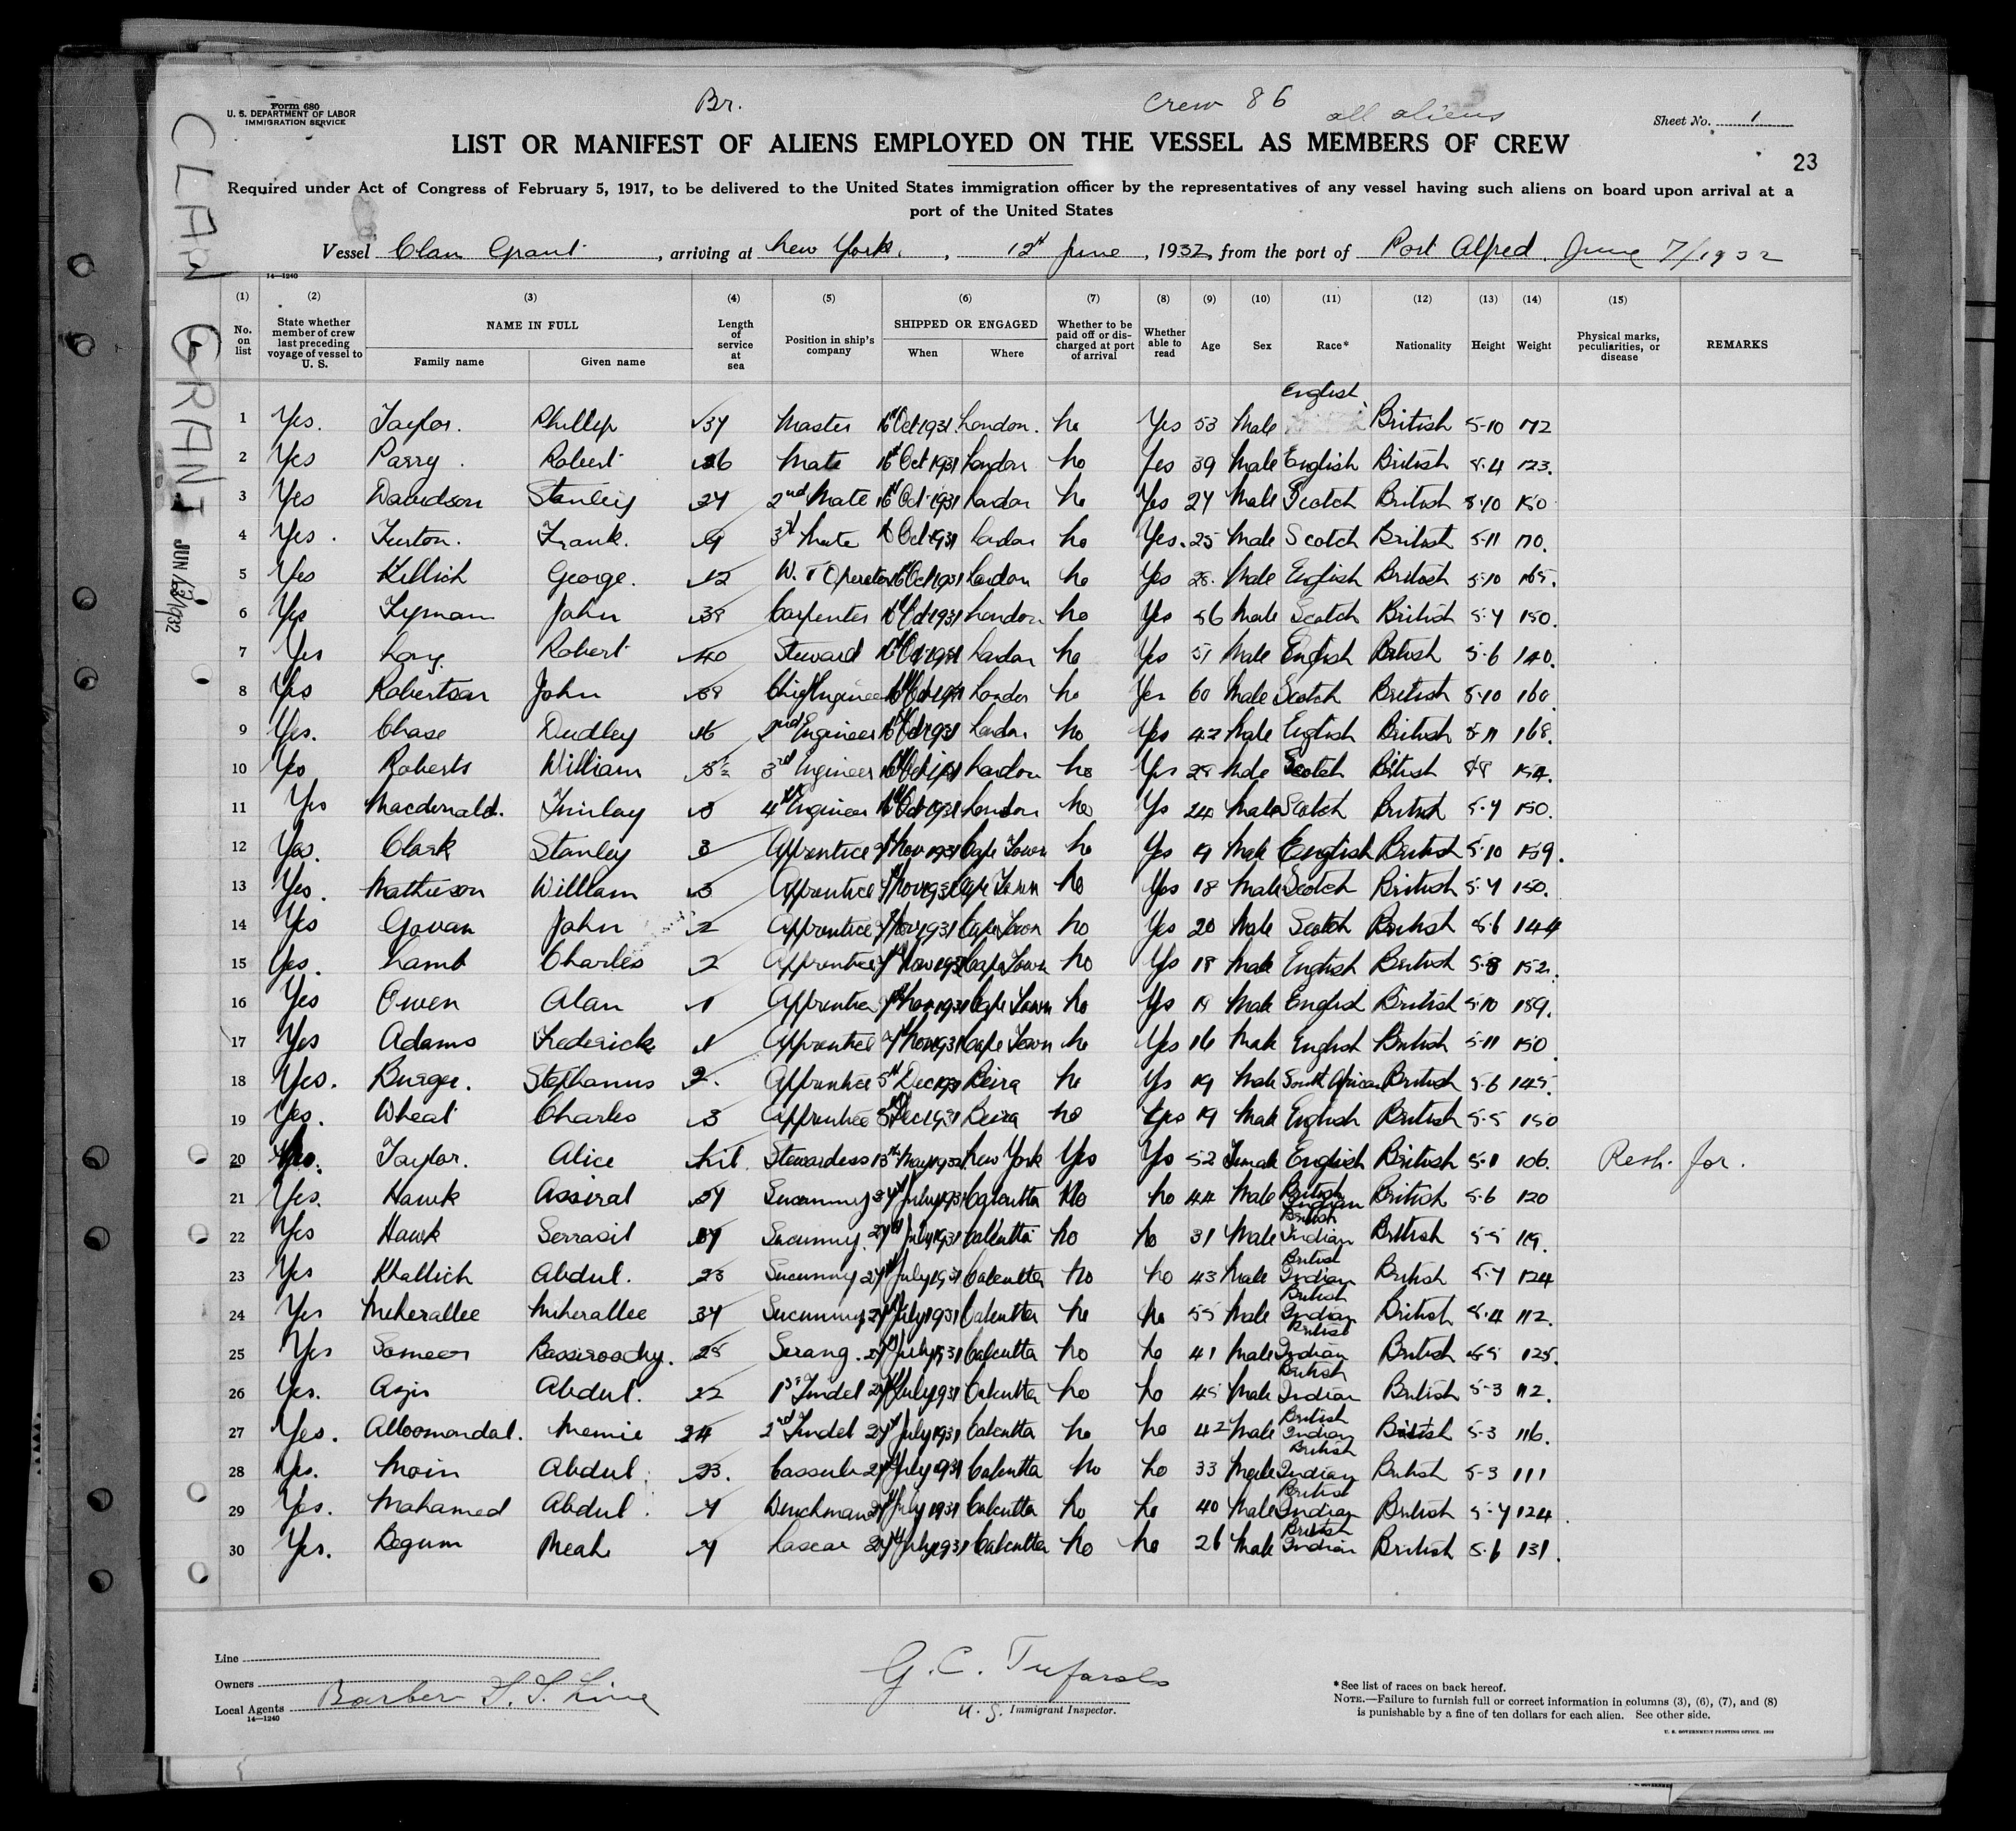 Form 680
U. S. DEPARTMENT OF LABOR
IMMIGRATION SERVICE
Br.
Crew 86
all aliens
Sheet No. 1
LIST OR MANIFEST OF ALIENS EMPLOYED ON THE VESSEL AS MEMBERS OF CREW
23
Required under Act of Congress of February 5, 1917, to be delivered to the United States immigration officer by the representatives of any vessel having such aliens on board upon arrival at a
port of the United States
Vessel Clan Grant, arriving at New York, 12th June, 1932, from the port of Port Alfred. June 7/1932
CLAN GRANT JUN 1932
14—1240
(1) (2) (3) (4) (5) (6) (7) (8) (9) (10) (11) (12) (13) (14) (15)
No. on list
State whether member of crew last preceding voyage of vessel to U. S.
NAME IN FULL
Family name Given name
Length of service at sea
Position in ship's company
SHIPPED OR ENGAGED
When Where
Whether to be paid off or discharged at port of arrival
Whether able to read
Age Sex Race* Nationality Height Weight
Physical marks, peculiarities, or disease
REMARKS
1 Yes. Taylor. Phillip 37 Master 16th Oct 1931 London. No Yes 53 Male English British 5-10 172
2 Yes Parry. Robert 26 Mate 16th Oct 1931 London No Yes 39 Male English British 5.4 123.
3 Yes Davidson Stanley 2nd Mate 16th Oct 1931 London No Yes 27 Male Scotch British 5.10 150
4 Yes. Turton. Frank. 9 3rd Mate Oct 1931 London No Yes. 25 Male Scotch British 5-11 170.
5 Yes Killich George. 12 W. T Operator 16th Oct 1931 London No Yes 28. Male English British 5-10 165.
6 Yes Lyman John 38 Carpenter 16 Oct 1931 London No Yes 56 Male Scotch British 5.7 150.
7 Yes Robert 40 Steward 16th Oct 1931 London No Yes 51 Male English British 5.6 140.
8 Yes Robertson John 38 Chief Engineer 16th Oct 1931 London No Yes 60 Male Scotch British 5-10 160
9 Yes. Chase Dudley 16 2nd Engineer 16th Oct 1931 London No Yes 42 Male English British 5-11 168.
10 Yes Roberts William 3rd Engineer 16th Oct 1931 London No Yes 28 Male Scotch British 5.8 154.
11 Yes Macdonald. Finlay 3 4th Engineer 16th Oct 1931 London No Yes 24 Male Scotch British 5.7 150.
12 Yes. Clark Stanley 3 Apprentice 7th Nov 1931 Cape Town No Yes 19 Male English British 5-10 159.
13 Yes. Mathieson William 3 Apprentice 7th Nov 1931 Cape Town No Yes 18 Male Scotch British 5.7 150.
14 Yes Govan John 2 Apprentice 7th Nov 1931 Cape Town No Yes 20 Male Scotch British 5.6 144
15 Yes. Lamb Charles 2 Apprentice 7th Nov 1931 Cape Town No Yes 18 Male English British 5.8 152.
16 Yes Owen Alan 1 Apprentice 7th Nov 1931 Cape Town No Yes 19 Male English British 5-10 159.
17 Yes Adams Frederick 1 Apprentice 7th Nov 1931 Cape Town No Yes 16 Male English British 5-11 150
18 Yes. Burger. Stephanus 2. Apprentice 5th Dec 1931 Beira No Yes 19 Male South African British 5.6 145.
19 Yes. Wheat Charles 3 Apprentice 5th Dec 1931 Beira No Yes 19 Male English British 5-5 150
20 No. Taylor. Alice Nil Stewardess 13th May 1932 New York Yes Yes 52 Female English British 5-1 106. for.
21 Yes. Hawk Assirat 27 Sucunny 27th July 1931 Calcutta No No 44 Male British Indian British 5.6 120
22 Yes Hawk Serrasit Sucunny. 27th July 1931 Calcutta No No 31 Male British Indian British 5-5 119.
23 Yes Khallich Abdul. 23 Sucunny 27th July 1931 Calcutta No No 43 Male British Indian British 5.7 124
24 Yes Meherallee Miherallee 37 Sucunny 27th July 1931 Calcutta No No 55 Male British Indian British 5.4 112.
25 Yes Someer Bassiroochy. 25 Serang. 27th July 1931 Calcutta No No 41 Male British Indian British 5.5 125.
26 Yes. Azis Abdul. 22 1st Tindel 27th July 1931 Calcutta No No 45 Male British Indian British 5-3 112.
27 Yes. Alloomondal. Memie 24 2nd Tindel 27th July 1931 Calcutta No No 42 Male British Indian British 5-3 116.
28 Yes. Moin Abdul. 23. Cassub 27th July 1931 Calcutta No No 33 Male British Indian British 5-3 111
29 Yes. Mahamed Abdul. 7 Winchman 27th July 1931 Calcutta No No 40 Male British Indian British 5-7 124.
30 Yes. Begum Meah 7 Lascar 27th July 1931 Calcutta No No 26 Male British Indian British 5.6 131.
Line
Owners
Local Agents Barber S. S. Line
14—1240
G. C. Tufarolo
U. S. Immigrant Inspector.
*See list of races on back hereof.
NOTE.—Failure to furnish full or correct information in columns (3), (6), (7), and (8)
is punishable by a fine of ten dollars for each alien. See other side.
U. S. GOVERNMENT PRINTING OFFICE